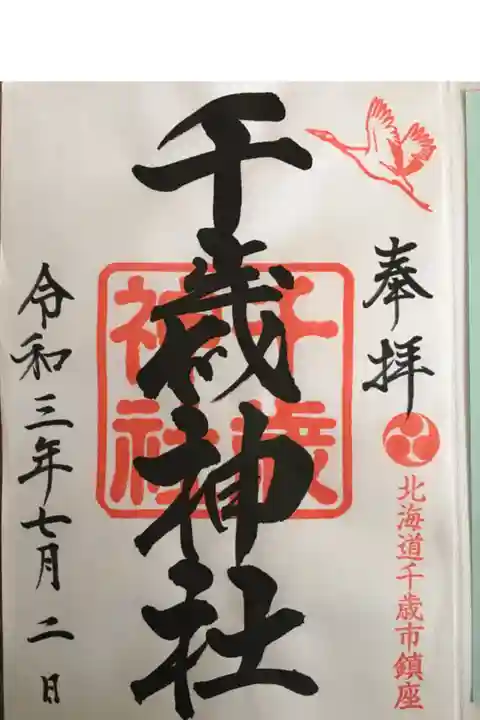 奉拝
北海道千歳市鎮座
千歳神社
千歳神社
令和三年七月二日